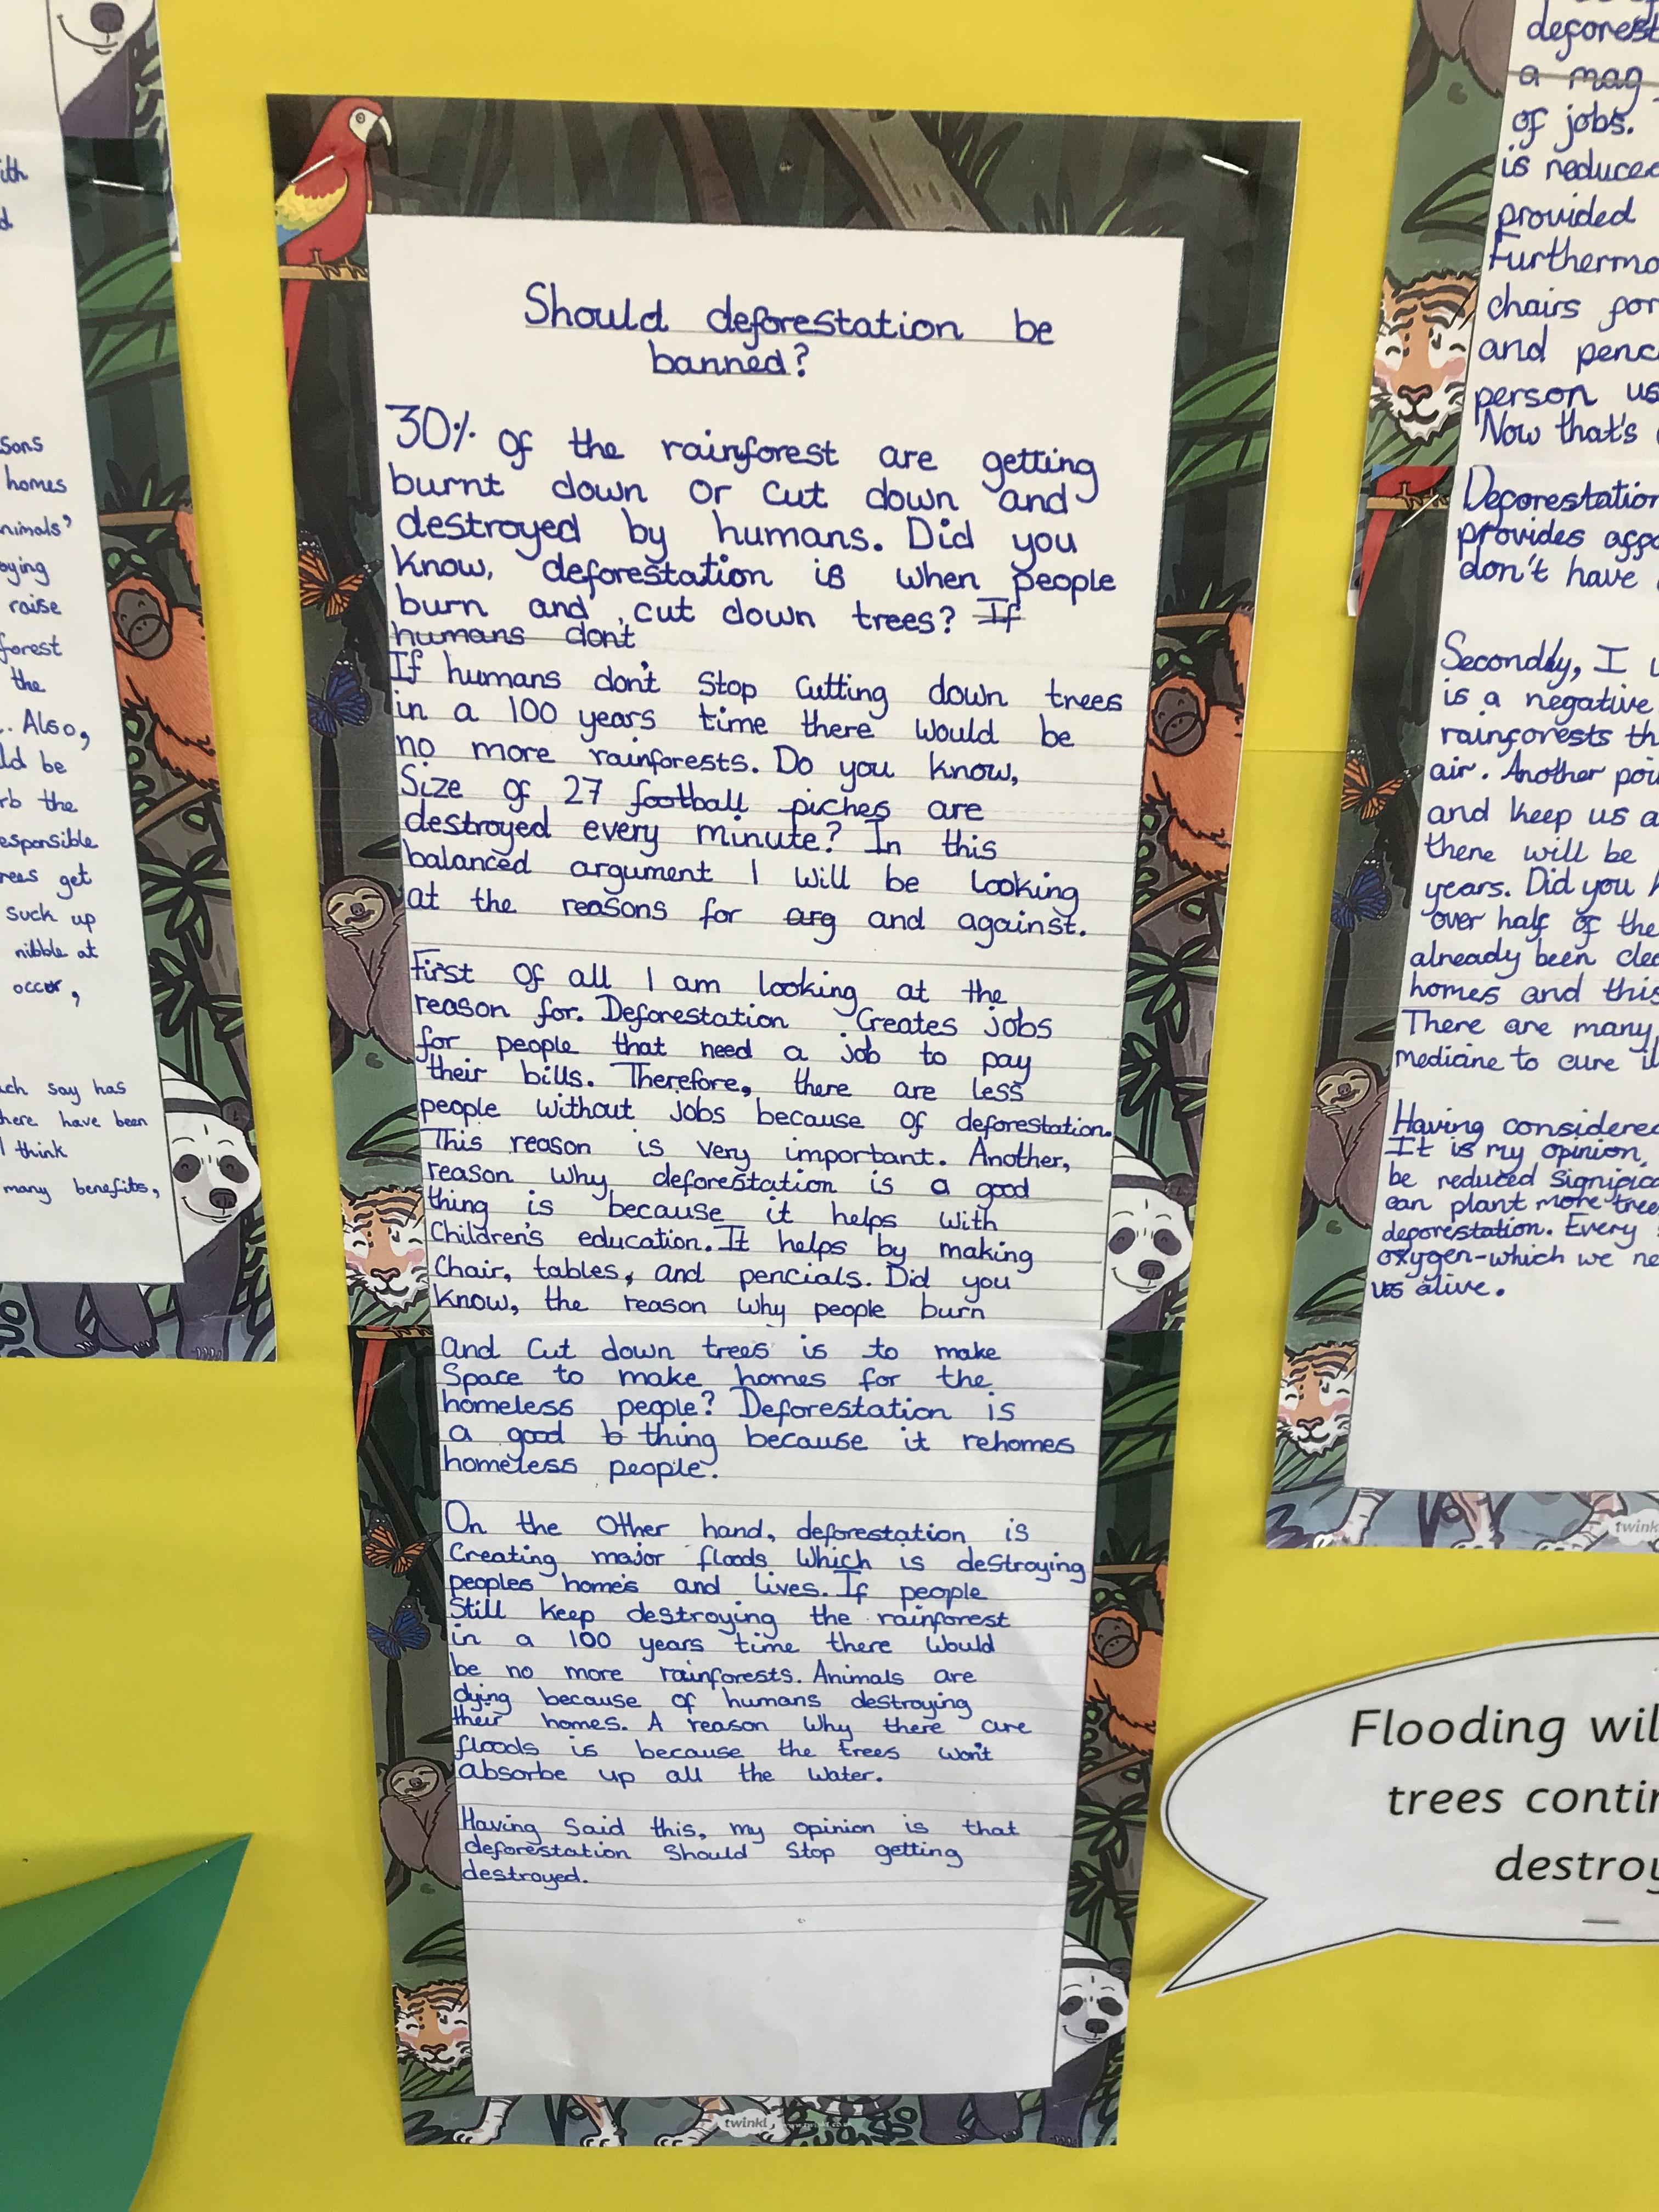 Should deforestation be
banned?
30% of the rainforest are getting
burnt down or cut down and
destroyed by humans. Did you
know, deforestation is when people
burn and cut down trees? If
humans don't
If humans don't stop cutting down trees
in a 100 years time there would be
no more rainforests. Do you know,
Size of 27 football piches are
destroyed every minute? In this
balanced argument I will be looking
at the reasons for arg and against.
First of all I am looking at the
reason for. Deforestation creates jobs
for people that need a job to pay
their bills. Therefore, there are less
people without jobs because of deforestation.
This reason is very important. Another,
reason why deforestation is a good
thing is because it helps with
Children's education. It helps by making
Chair, tables, and pencials. Did you
know, the reason why people burn
and cut down trees is to make
Space to make homes for the
homeless people? Deforestation is
a good b thing because it rehomes
homeless people.
On the other hand, deforestation is
Creating major floods which is destroying
peoples home's and lives. If people
still keep destroying the rainforest
in a 100 years time there would
be no more rainforests. Animals are
dying because of humans destroying
their homes. A reason why there are
floods is because the trees won't
absorbe up all the water.
Having said this, my opinion is that
deforestation should stop getting
destroyed.
twinkl
ith
d.
sons
homes
nimals'
oying
raise
forest
the
. Also,
ld be
rb the
esponsible
rees get
suck up
nibble at
occur,
ach say has
here have been
I think
many benefits,
deforest
a mag
of jobs.
is reduced
provided
Furthermo
chairs for
and penc
person us
Now that's
Deforestation
provides affo
don't have
Secondly, I
is a negative
rainforests th
air. Another poi
and keep us a
there will be
years. Did you k
over half of the
already been clea
homes and this
There are many
medicine to cure il
Having considered
It is my opinion,
be reduced significa
can plant more tree
deforestation. Every
oxygen-which we ne
us alive.
twinkl
Flooding wil
trees contin
destroy